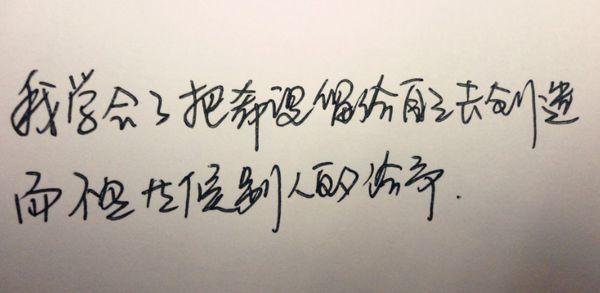 我学会了把希望留给自己去创造
而不是等候别人的给予.